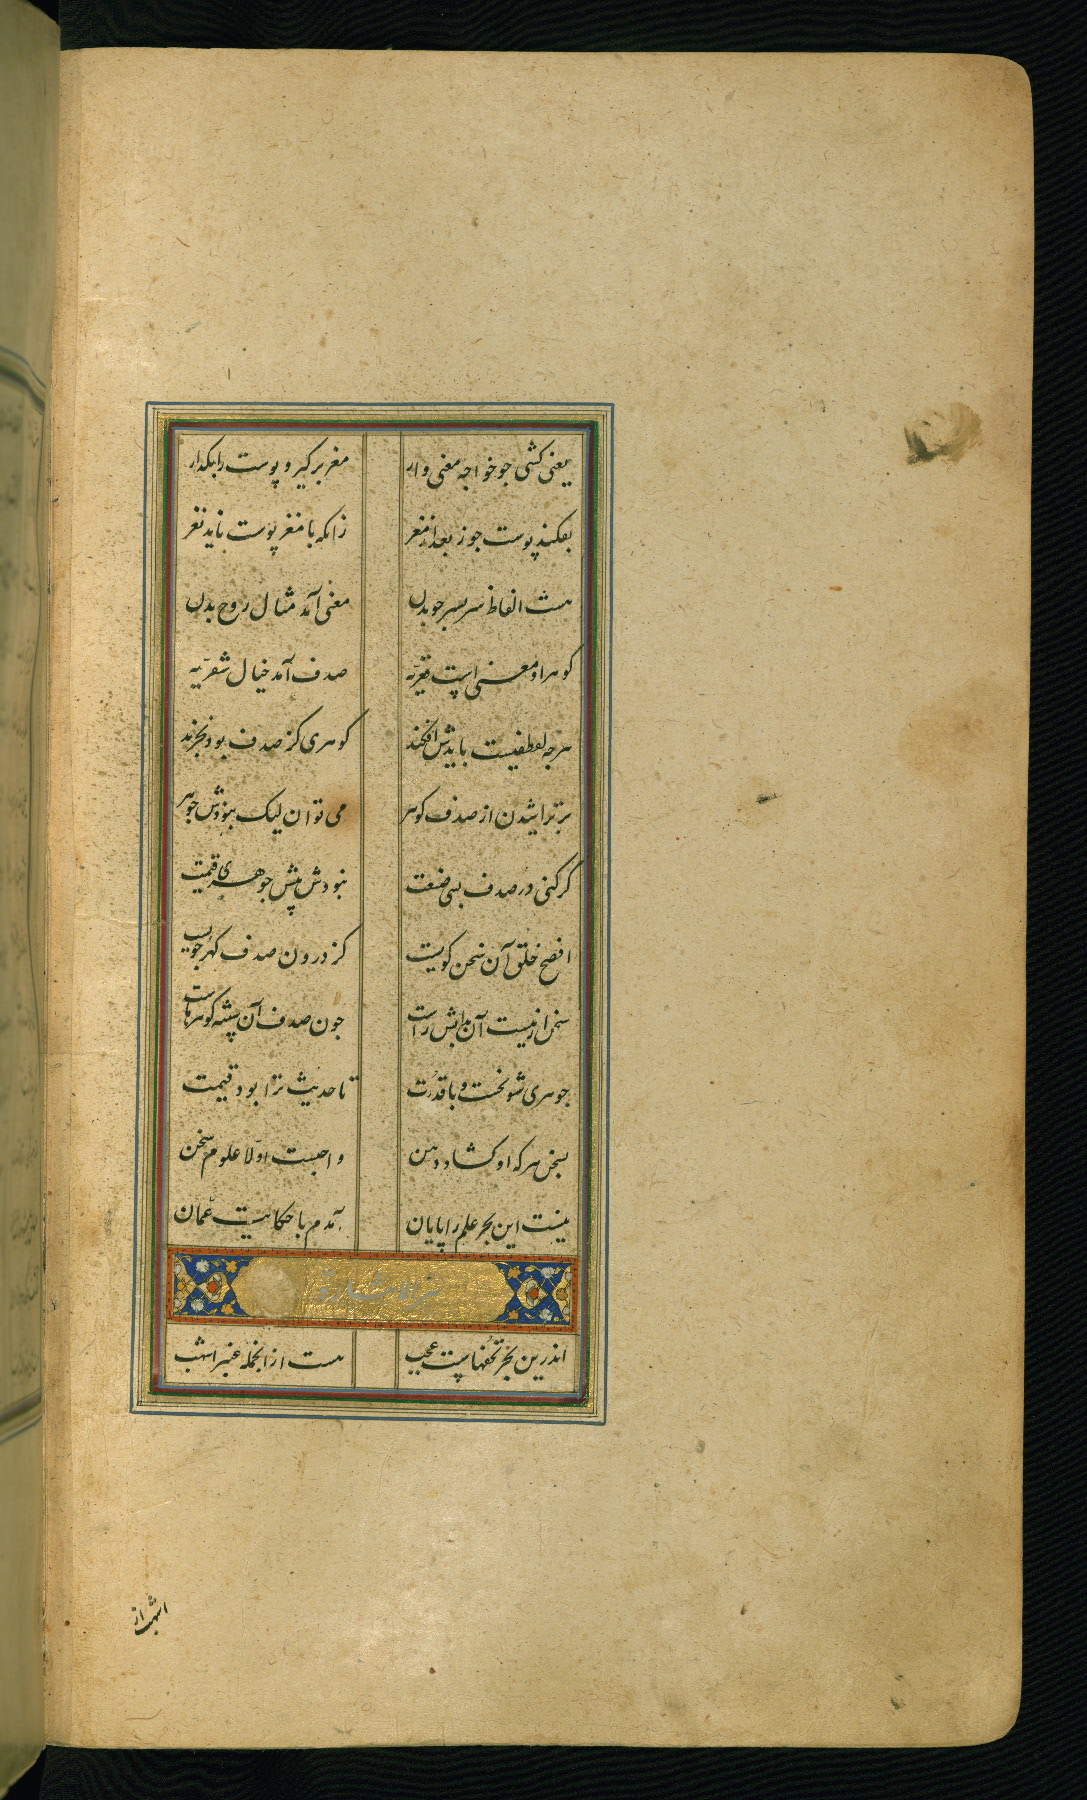 یعنی کشی جو خواجه معنی وار مغز برگیر و پوست را بگذار
بفکند پوست جوز بعد از مغز زانکه با مغز پوست ناید نغز
هست الفاظ سربسر جو بدن معنی آمد مثال روح بدن
کوهر او معنی است صدف آمد خیال شعریه
هرجه لفظیست بایدش افکند کوهری کز صدف بود نخرند
برتراشیدن از صدف کوهر می توان لیک نبودش جوهر
کر کنی در صدف بسی صنعت نبودش پیش جوهری قیمت
افصح خلق آن سخن کویست کز درون صدف کهر جویست
سخن از نیست آن جون صدف آن پیشه کوهر
جوهری شو نخست و با قدرت تا حدیث ترا بود قیمت
بسخن هر که او کشاد دهن واجبست اولا علوم سخن
نیست این بحر علم را پایان آمدم با حکایت عمان
اندرین بحر تحفهاست عجب هست از انجمله عنبر اشهب
اشهب از